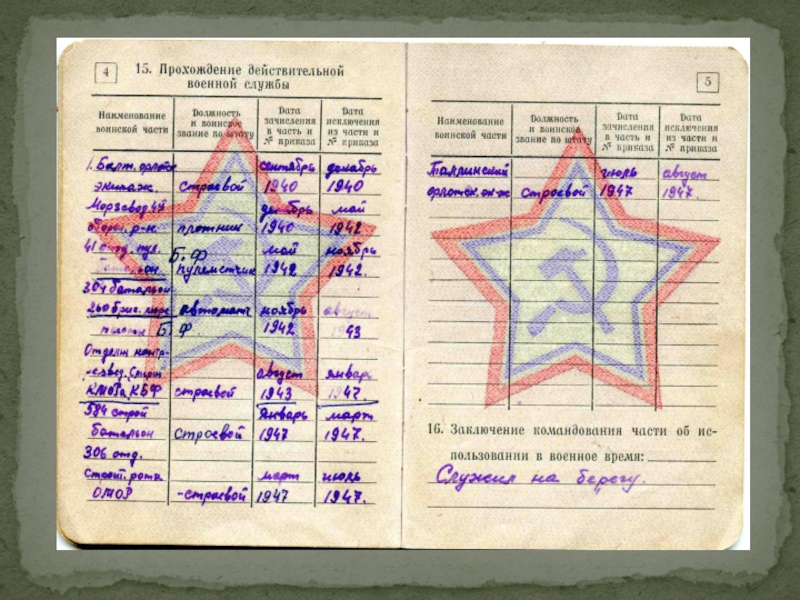 4
15. Прохождение действительной
военной службы
Наименование воинской части
Должность и воинское звание по штату
Дата зачисления в часть и № приказа
Дата исключения из части и № приказа
1. Балт. флотск сентябрь декабрь
экипаж. строевой 1940 1940
декабрь май
оборон. р-н плотник 1940 1942
41 отд. пул. Б.Ф май ноябрь
батальон пулеметчик 1942 1942.
304 батальон
260 бриг. морс автоматч ноябрь август
пехоты Б.Ф. 1942 1943
Отдел контр-
развед. "Смерш" август январь
КМОРа КБФ строевой 1943 1947.
584 строй январь март
батальон строевой 1947 1947.
306 отд.
строит. рота март июль
ОМОР -строевой 1947 1947.
5
Наименование воинской части
Должность и воинское звание по штату
Дата зачисления в часть и № приказа
Дата исключения из части и № приказа
Таллинский июль август
флотск. эк-ж строевой 1947 1947.
16. Заключение командования части об ис-
пользовании в военное время:
Служил на берегу.